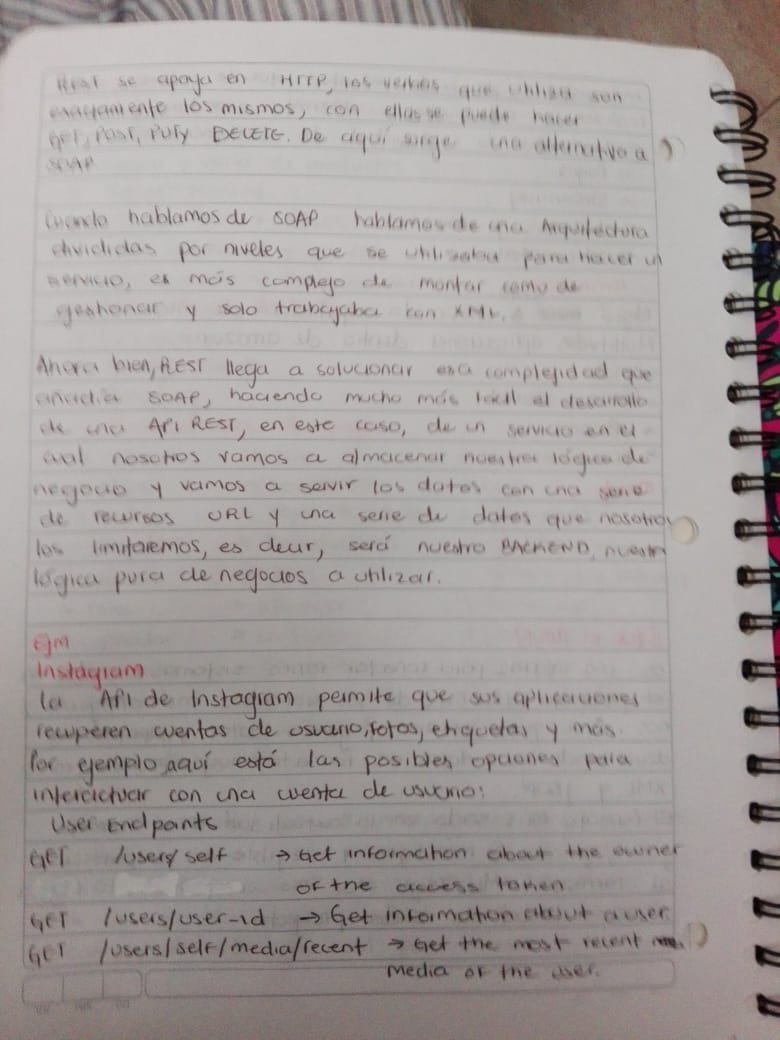 REST se apoya en HTTP, los verbos que utiliza son
exactamente los mismos, con ellos se puede hacer
GET, POST, PUT y DELETE. De aquí surge una alternativa a
SOAP
Cuando hablamos de SOAP hablamos de una Arquitectura
divididas por niveles que se utilizaba para hacer un
servicio, es más complejo de montar como de
gestionar y solo trabajaba con XML.
Ahora bien, REST llega a solucionar esa complejidad que
añadia SOAP, haciendo mucho más fácil el desarrollo
de una API REST, en este caso, de un servicio en el
cual nosotros vamos a almacenar nuestra lógica de
negocio y vamos a servir los datos con una serie
de recursos URL y una serie de datos que nosotros
los limitaremos, es decir, será nuestro BACKEND, nuestra
lógica pura de negocios a utilizar.
Ejm
Instagram
La API de Instagram permite que sus aplicaciones
recuperen cuentas de usuario, fotos, etiquetas y más.
Por ejemplo, aquí está las posibles opciones para
interactuar con una cuenta de usuario:
User Endpoints
GET /users/self → Get information about the owner
of the access token
GET /users/user-id → Get information about a user
GET /users/self/media/recent → Get the most recent
media of the user.